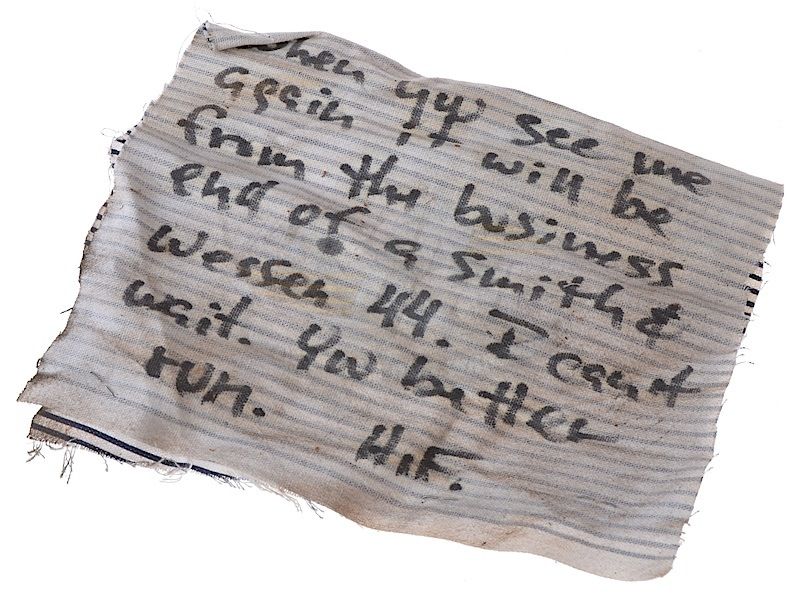 When you see me
again it will be
from the business
end of a Smith &
Wessen 44. I can't
wait. You better
run.
H.F.